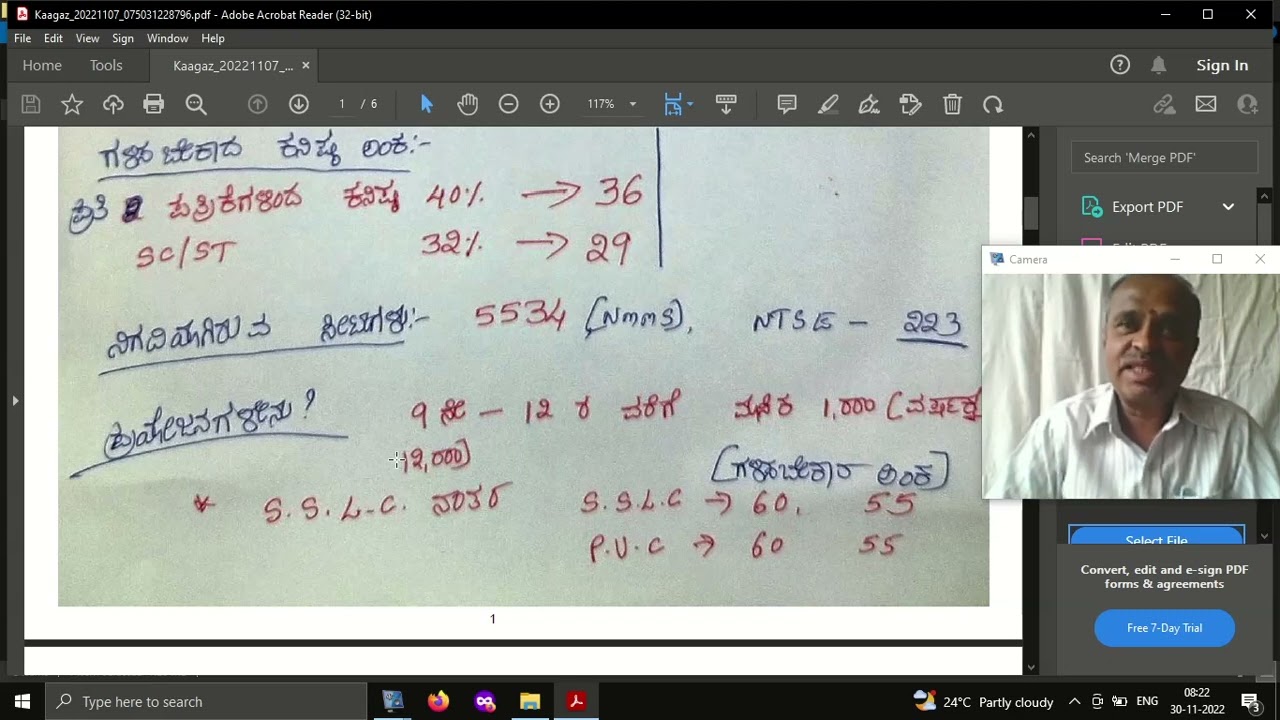 Kaagaz_20221107_075031228796.pdf - Adobe Acrobat Reader (32-bit)
File Edit View Sign Window Help
Home Tools Kaagaz_20221107_... × Sign In
1 / 6 117%
Search 'Merge PDF'
Export PDF
Edit PDF
Camera
ಗಳಿಸಬೇಕಾದ ಕನಿಷ್ಠ ಅಂಕ:-
ಪ್ರತಿ ಪತ್ರಿಕೆಗಳಿಂದ ಕನಿಷ್ಠ 40% → 36
SC/ST 32% → 29
ನಿಗದಿಯಾಗಿರುವ ಸೀಟುಗಳು:- 5534 (NMMS), NTSE - 223
ಪ್ರಯೋಜನಗಳೇನು?
9 ನೇ - 12 ರ ವರೆಗೆ ಮಾಸಿಕ 1,000 (ವರ್ಷಕ್ಕೆ
12,000)
[ಗಳಿಸಬೇಕಾದ ಅಂಕ]
* S.S.L.C. ನಂತರ S.S.L.C → 60, 55
P.U.C → 60 55
1
Select File
Convert, edit and e-sign PDF
forms & agreements
Free 7-Day Trial
Type here to search
24°C Partly cloudy ENG 08:22
30-11-2022 3